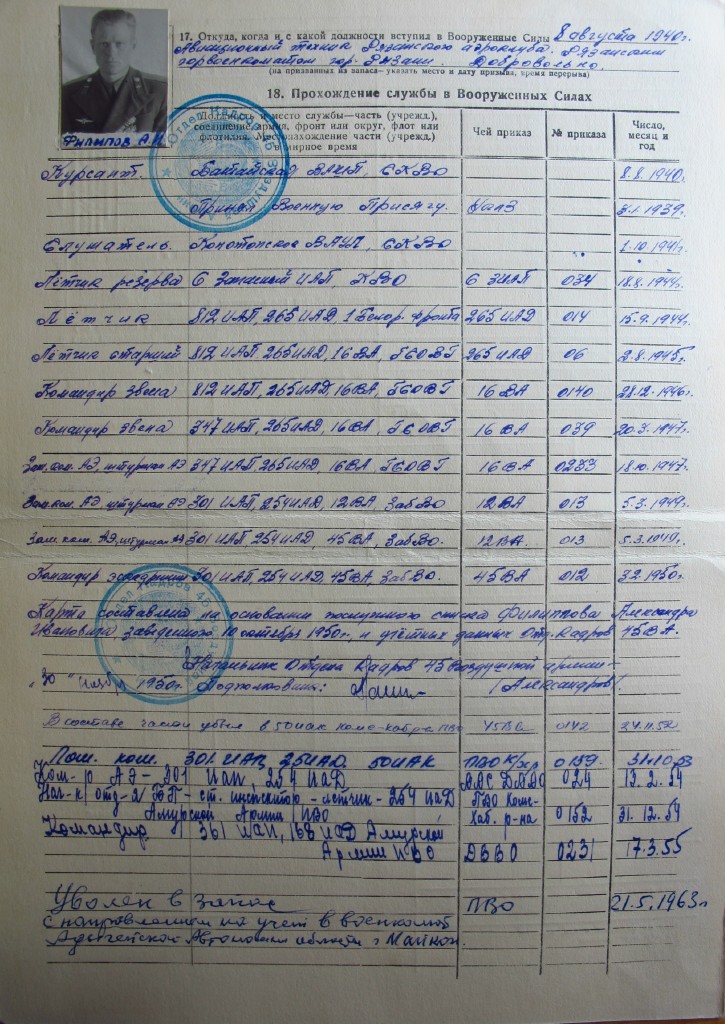 17. Откуда, когда и с какой должности вступил в Вооруженные Силы 8 августа 1940г.
Авиационный техник Рязанского аэроклуба. Рязанским
горвоенкоматом гор. Рязани. Добровольно.
(на призванных из запаса— указать место и дату призыва, время перерыва)
18. Прохождение службы в Вооруженных Силах
Филиппов А.И.
Должность и место службы—часть (учрежд.), соединение, армия, фронт или округ, флот или флотилия. Местонахождение части (учрежд.) в мирное время
Чей приказ
№ приказа
Число, месяц и год
Курсант. Батайская ВАШП, СКВО 8.8.1940г.
Принял Военную Присягу. 3.1.1939г.
Слушатель. Конотопское ВАУП, СКВО 1.10.1941г.
Лётчик резерва 6 Запасный ИАП, ХВО 6 ЗИАП 034 18.8.1944г.
Лётчик 812 ИАП, 265 ИАД, 1 Белор. фронта 265 ИАД 014 15.9.1944г.
Лётчик старший 812 ИАП, 265 ИАД, 16 ВА, ГСОВГ 265 ИАД 06 2.8.1945г.
Командир звена 812 ИАП, 265 ИАД, 16 ВА, ГСОВГ 16 ВА 0140 28.12.1946г.
Командир звена 347 ИАП, 265 ИАД, 16 ВА, ГСОВГ 16 ВА 039 20.3.1947г.
Зам. ком. АЭ, штурман АЭ 347 ИАП, 265 ИАД, 16 ВА, ГСОВГ 16 ВА 0233 18.10.1947г.
Зам. ком. АЭ, штурман АЭ 301 ИАП, 254 ИАД, 12 ВА, ЗабВО 12 ВА 013 5.3.1949г.
Зам. ком. АЭ, штурман АЭ 301 ИАП 254 ИАД, 45 ВА, ЗабВО. 12 ВА. 013 5.3.1949г.
Командир эскадрильи 301 ИАП, 254 ИАД, 45 ВА, ЗабВО. 45 ВА 012 3.2.1950г.
Карта составлена на основании послужного списка Филиппова Александра
Ивановича заведенного 10 октября 1950г., и учётных данных Отд. Кадров 45 ВА.
Начальник Отдела Кадров 45 Воздушной армии—
"30" ноября 1950г. Подполковник: /Александров/.
В составе части убыл в 50 иак 45 ВА 0142 24.11.52
Пом. ком. 301 ИАП, 254 ИАД. 50 ИАК 0159. 31.10.53
Ком-р АЭ - 301 ИАП, 254 ИАД ВВС ДВВО 024 13.2.54
Нач-к отд-я БП - ст. инспектор - летчик - 254 ИАД
Амурской Армии ПВО ПВО Комс-Хаб. р-на 0152 31.12.54
Командир 361 ИАП, ИАД Амурской
Армии ПВО ДВВО 0231 17.3.55
Уволен в запас ПВО 21.5.1963г
с направлением на учет в военкомат
Адыгейской Автономной области г Майкоп.